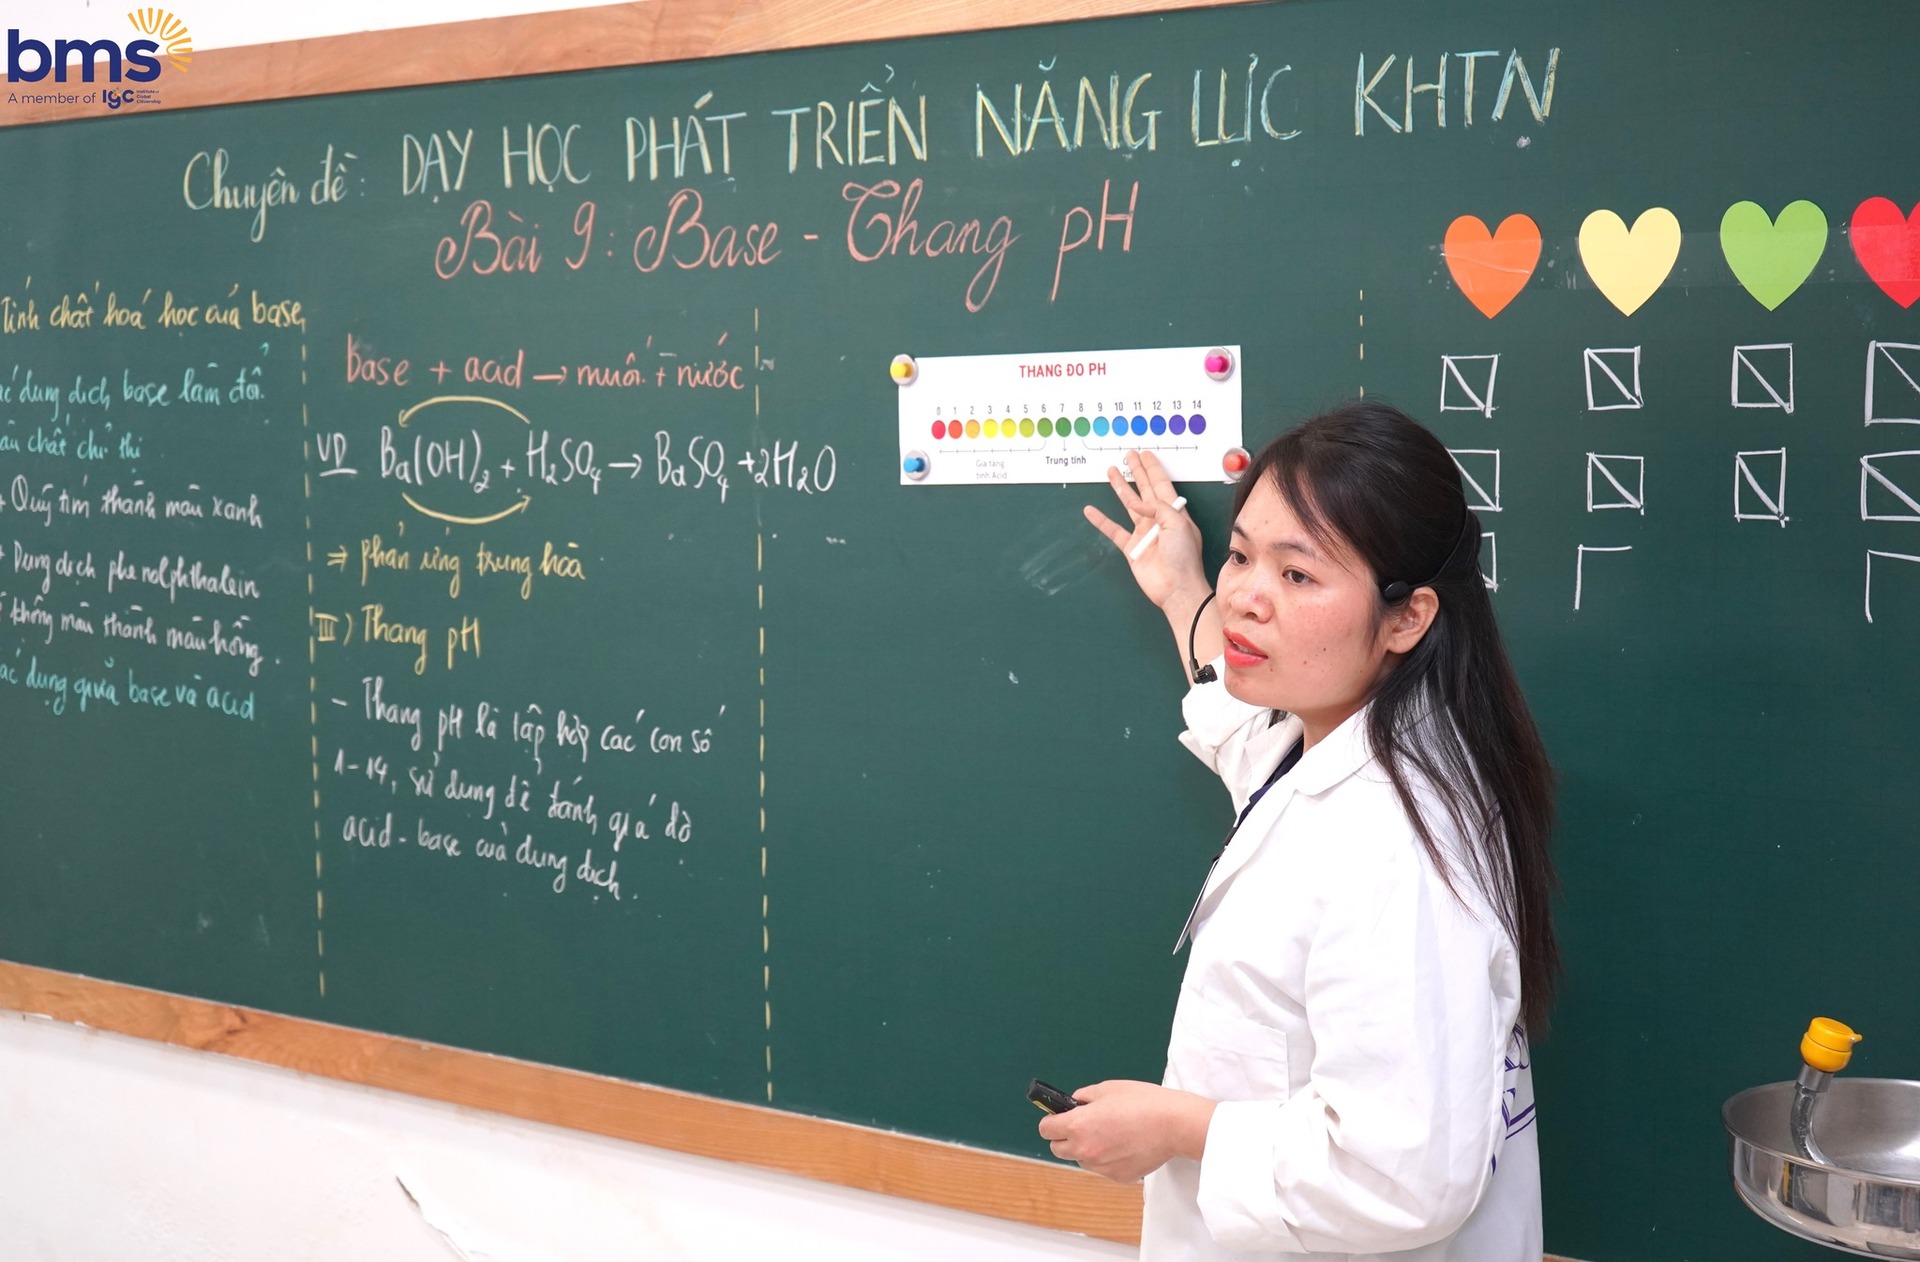 bms
A member of IGC Institute of Global Citizenship
Chuyên đề: DẠY HỌC PHÁT TRIỂN NĂNG LỰC KHTN
Bài 9: Base - Thang pH
Tính chất hoá học của base
dung dịch base làm đổi
chất chỉ thị
+ Quỳ tím thành màu xanh
+ Dung dịch phenolphthalein
không màu thành màu hồng.
dụng giữa base và acid
base + acid → muối + nước
VD Ba(OH)₂ + H₂SO₄ → BaSO₄ + 2H₂O
⇒ phản ứng trung hoà
III) Thang pH
- Thang pH là tập hợp các con số
1-14, sử dụng để đánh giá độ
acid - base của dung dịch.
THANG ĐO PH
0 1 2 3 4 5 6 7 8 9 10 11 12 13 14
Gia tăng
tính Acid
Trung tính